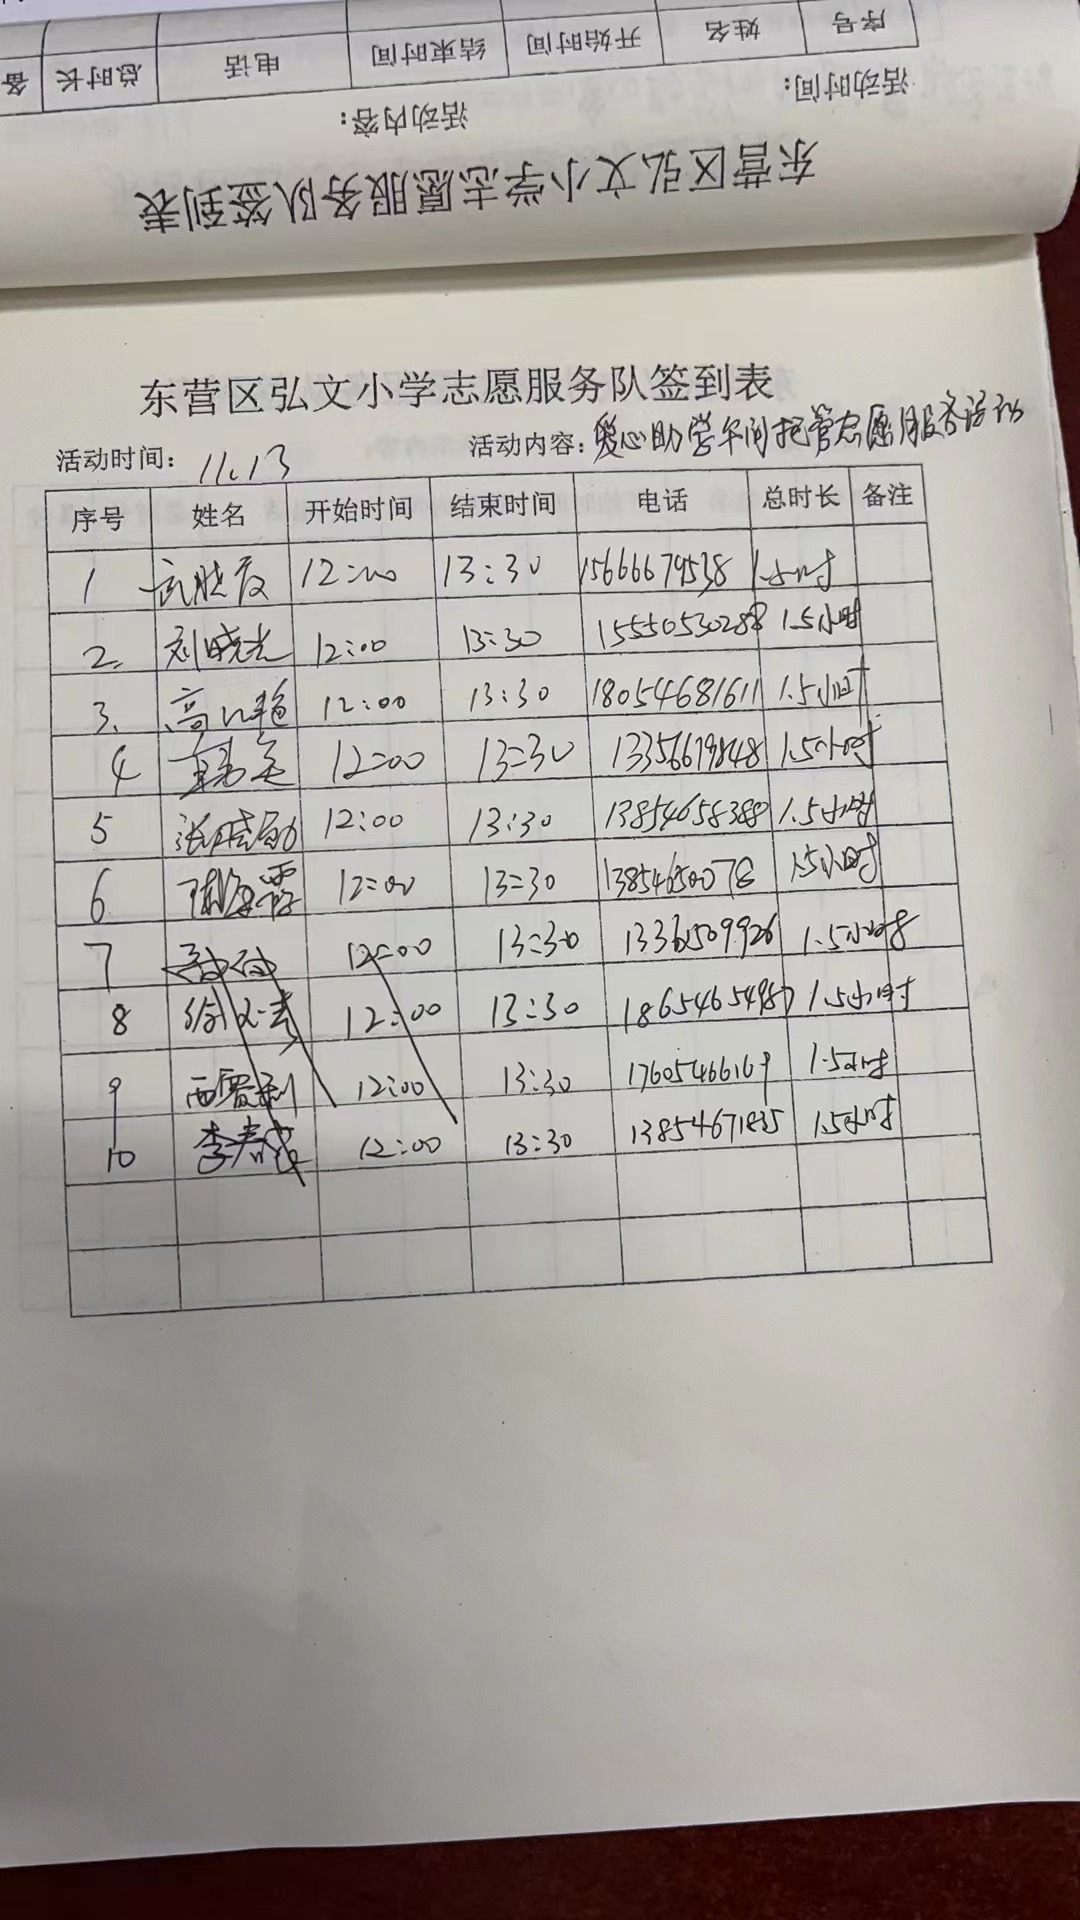 序号 姓名 开始时间 结束时间 电话 总时长 备
活动时间： 活动内容：
东营区弘文小学志愿服务队签到表
东营区弘文小学志愿服务队签到表
活动时间： 11.13 活动内容：爱心助学午间托管志愿服务活动
序号 姓名 开始时间 结束时间 电话 总时长 备注
1 12:00 13:30 15666679538 1.5小时
2. 刘晓光 12:00 13:30 15550530288 1.5小时
3. 高 艳 12:00 13:30 18054681611 1.5小时
4 12:00 13:30 13356679848 1.5小时
5 张 12:00 13:30 13854658388 1.5小时
6 陈海霞 12:00 13:30 13854650078 1.5小时
7 12:00 13:30 13361509926 1.5小时
8 徐 12:00 13:30 1.5小时
9 12:00 13:30 17605466169 1.5小时
10 李春 12:00 13:30 13854671835 1.5小时